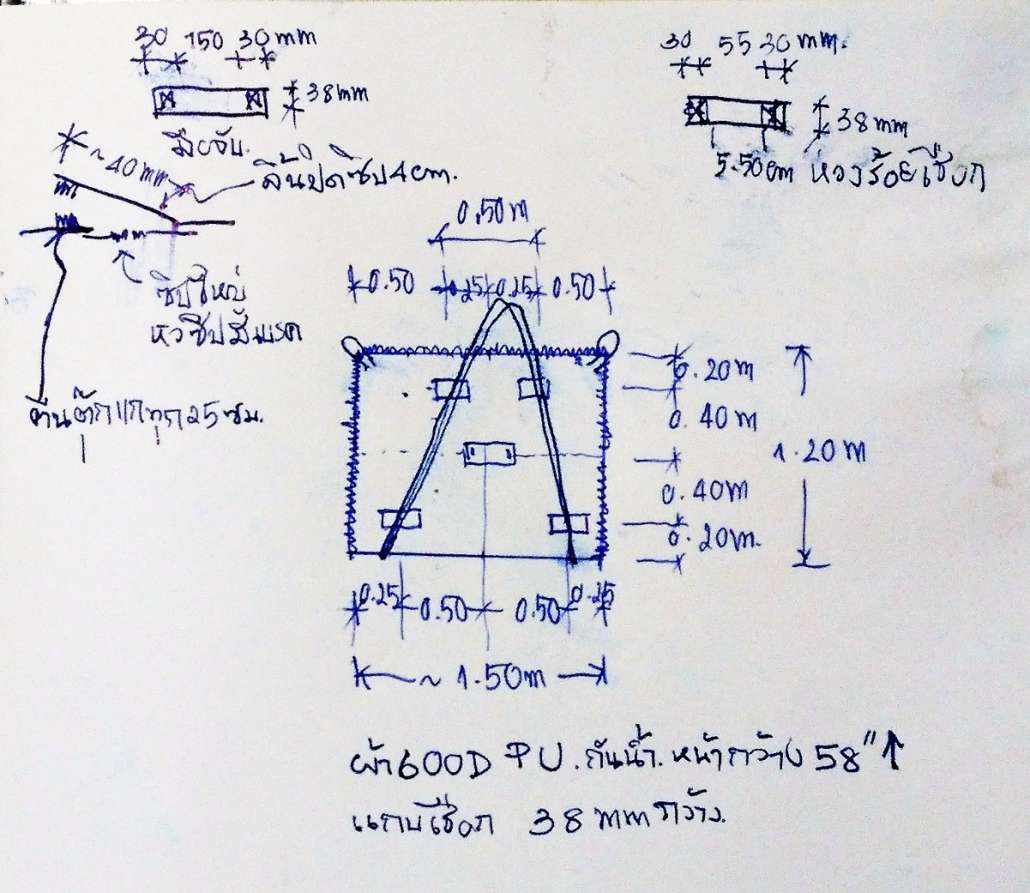 30 150 30 mm
38 mm
มือจับ
~ 40 mm
ลิ้นปิดซิป 4 cm.
ซิปใหญ่
หัวซิปมีเบรค
ตีนตุ๊กแกทุก 25 ซม.
30 55 30 mm.
38 mm
5.50 cm ห่วงร้อยเชือก
0.50 m
0.50 0.25 0.25 0.50
0.20 m
0.40 m
1.20 m
0.40 m
0.20 m.
0.25 0.50 0.50 0.25
~ 1.50 m
ผ้า 600D PU. กันน้ำ. หน้ากว้าง 58"↑
แถบเชือก 38 mm กว้าง.